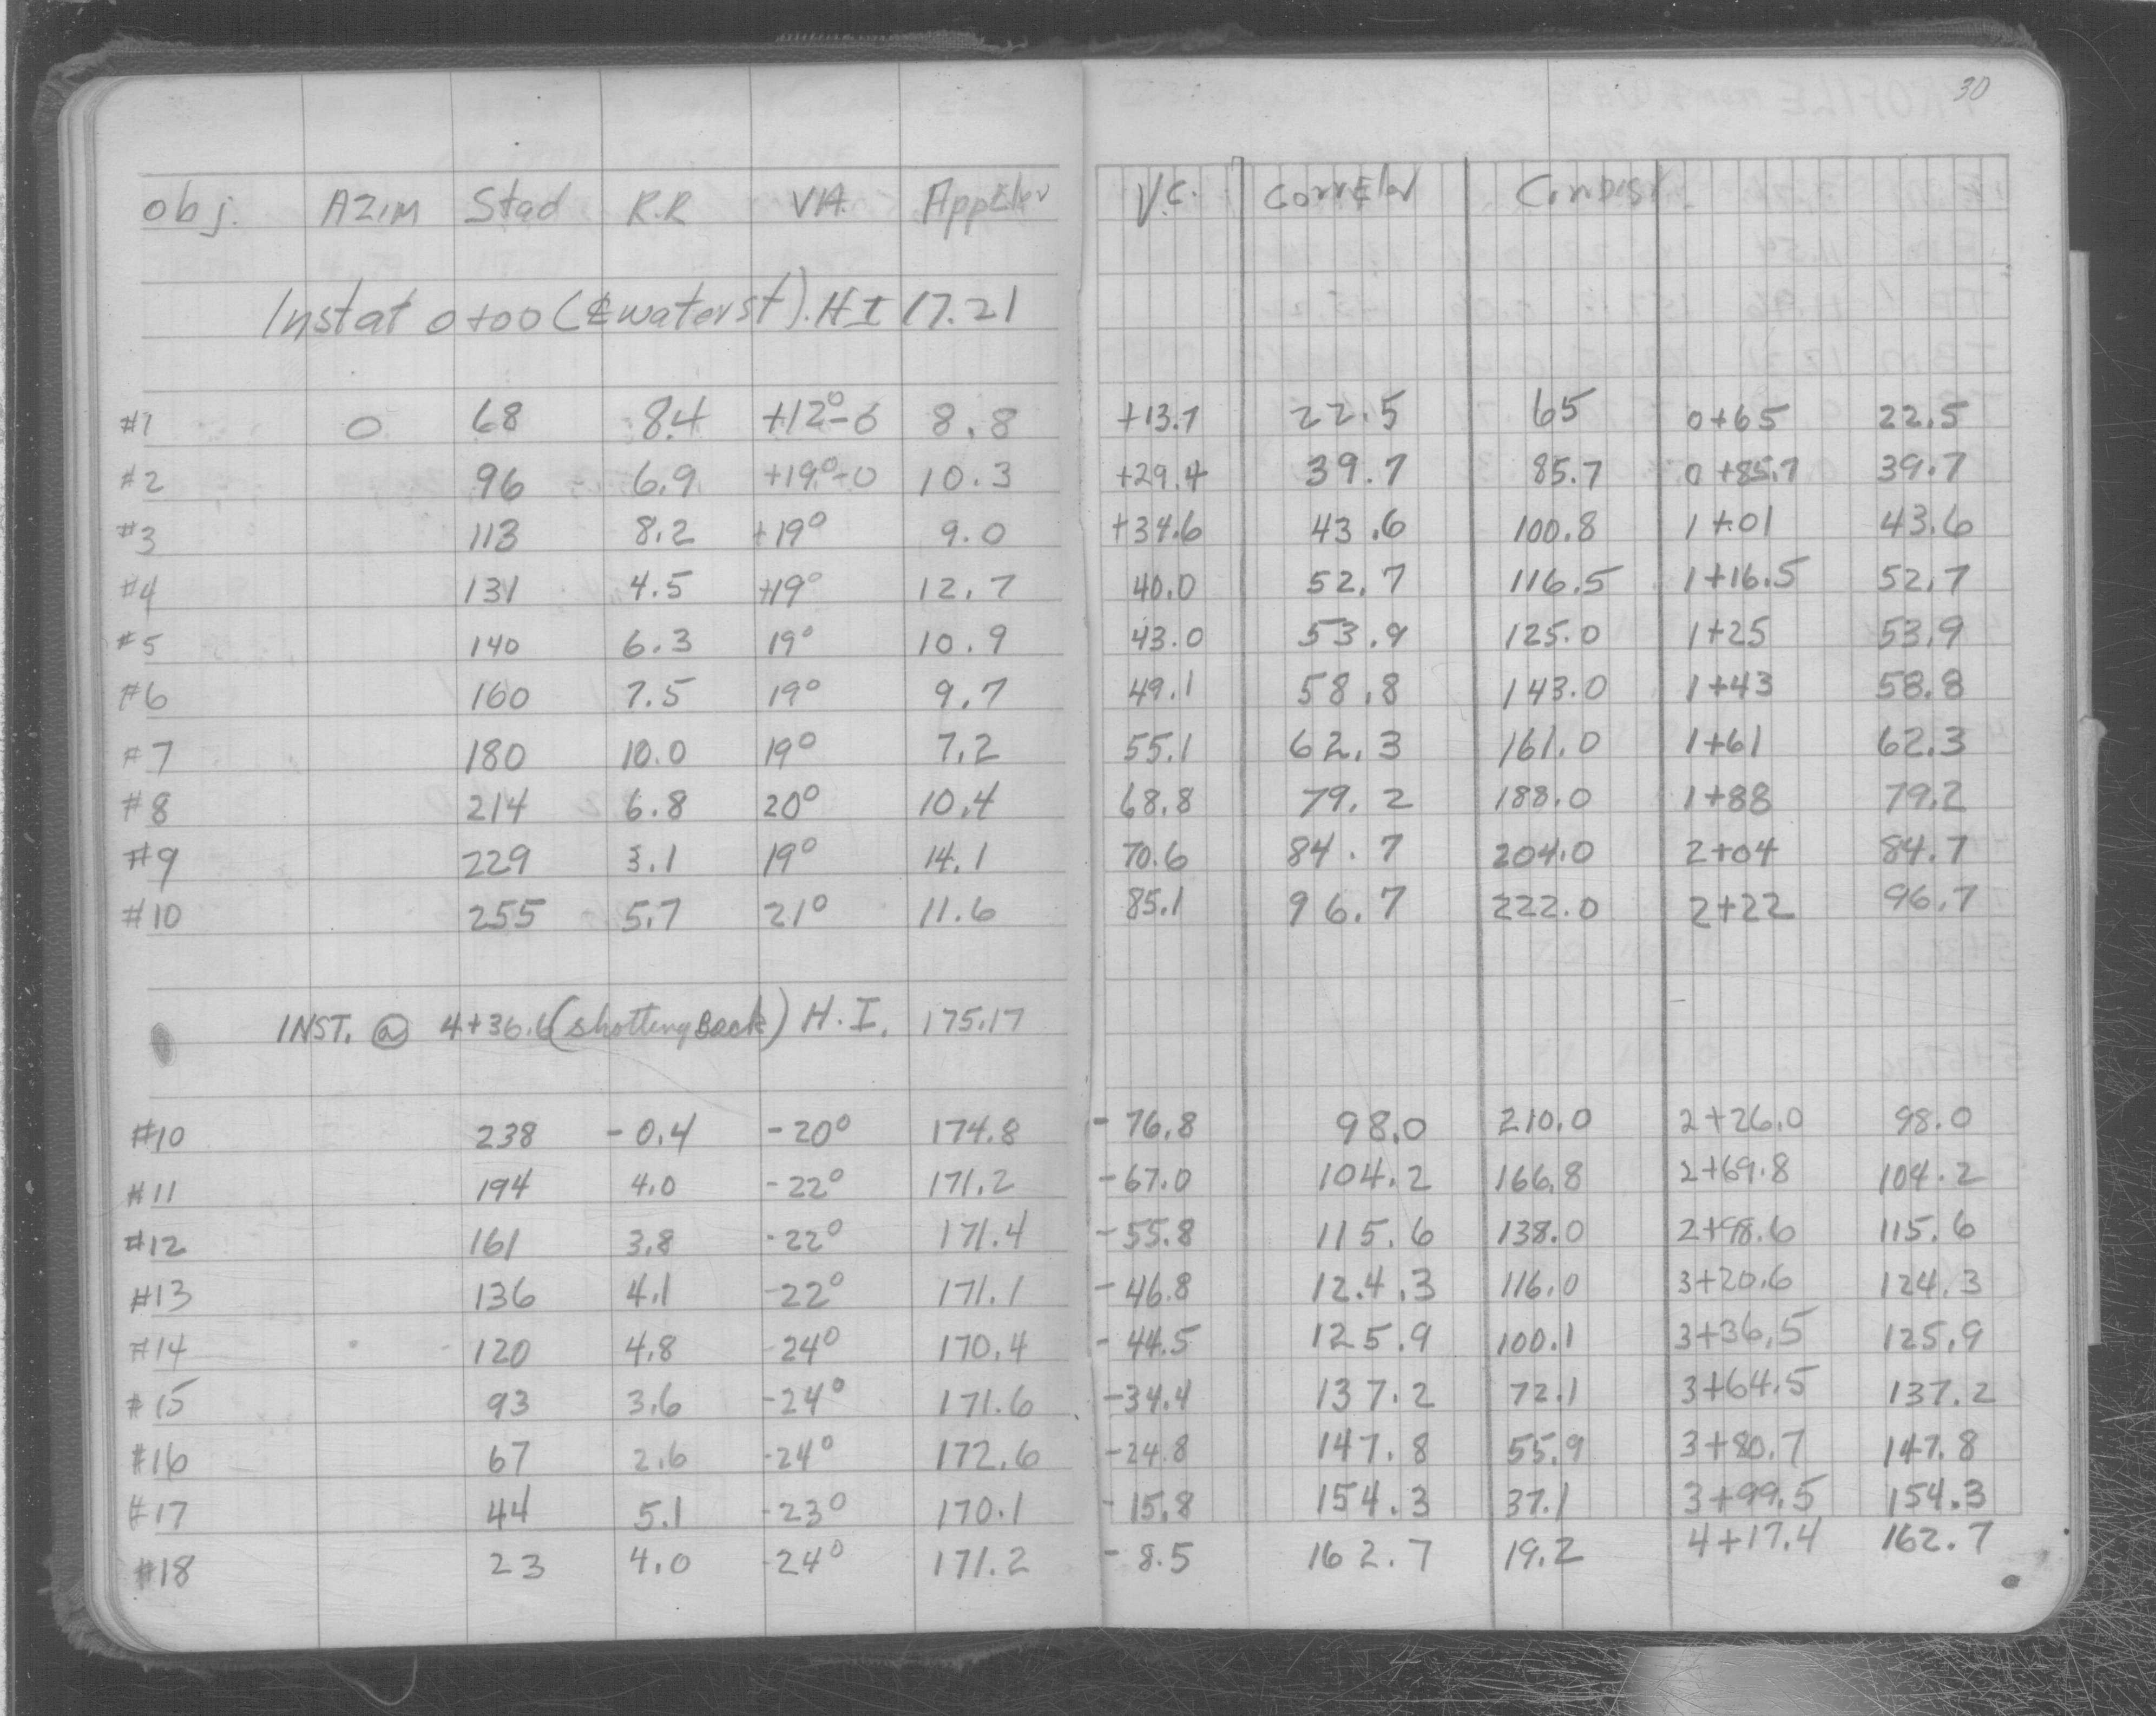 30
obj. AZIM Stad R.R VA. AppElev V.C. CorrElev CorDist
Inst at 0+00 (℄ water st). H I 17.21
#1 0 68 8.4 +12°-0 8.8 +13.7 22.5 65 0+65 22.5
#2 96 6.9 +19°-0 10.3 +29.4 39.7 85.7 0+85.7 39.7
#3 113 8.2 +19° 9.0 +34.6 43.6 100.8 1+01 43.6
#4 131 4.5 +19° 12.7 40.0 52.7 116.5 1+16.5 52.7
#5 140 6.3 19° 10.9 43.0 53.9 125.0 1+25 53.9
#6 160 7.5 19° 9.7 49.1 58.8 143.0 1+43 58.8
#7 180 10.0 19° 7.2 55.1 62.3 161.0 1+61 62.3
#8 214 6.8 20° 10.4 68.8 79.2 188.0 1+88 79.2
#9 229 3.1 19° 14.1 70.6 84.7 204.0 2+04 84.7
#10 255 5.7 21° 11.6 85.1 96.7 222.0 2+22 96.7
INST. @ 4+36.6 (shotting Back) H.I. 175.17
#10 238 -0.4 -20° 174.8 -76.8 98.0 210.0 2+26.0 98.0
#11 194 4.0 -22° 171.2 -67.0 104.2 166.8 2+69.8 104.2
#12 161 3.8 -22° 171.4 -55.8 115.6 138.0 2+98.6 115.6
#13 136 4.1 -22° 171.1 -46.8 124.3 116.0 3+20.6 124.3
#14 120 4.8 -24° 170.4 -44.5 125.9 100.1 3+36.5 125.9
#15 93 3.6 -24° 171.6 -34.4 137.2 72.1 3+64.5 137.2
#16 67 2.6 -24° 172.6 -24.8 147.8 55.9 3+80.7 147.8
#17 44 5.1 -23° 170.1 -15.8 154.3 37.1 3+99.5 154.3
#18 23 4.0 -24° 171.2 -8.5 162.7 19.2 4+17.4 162.7